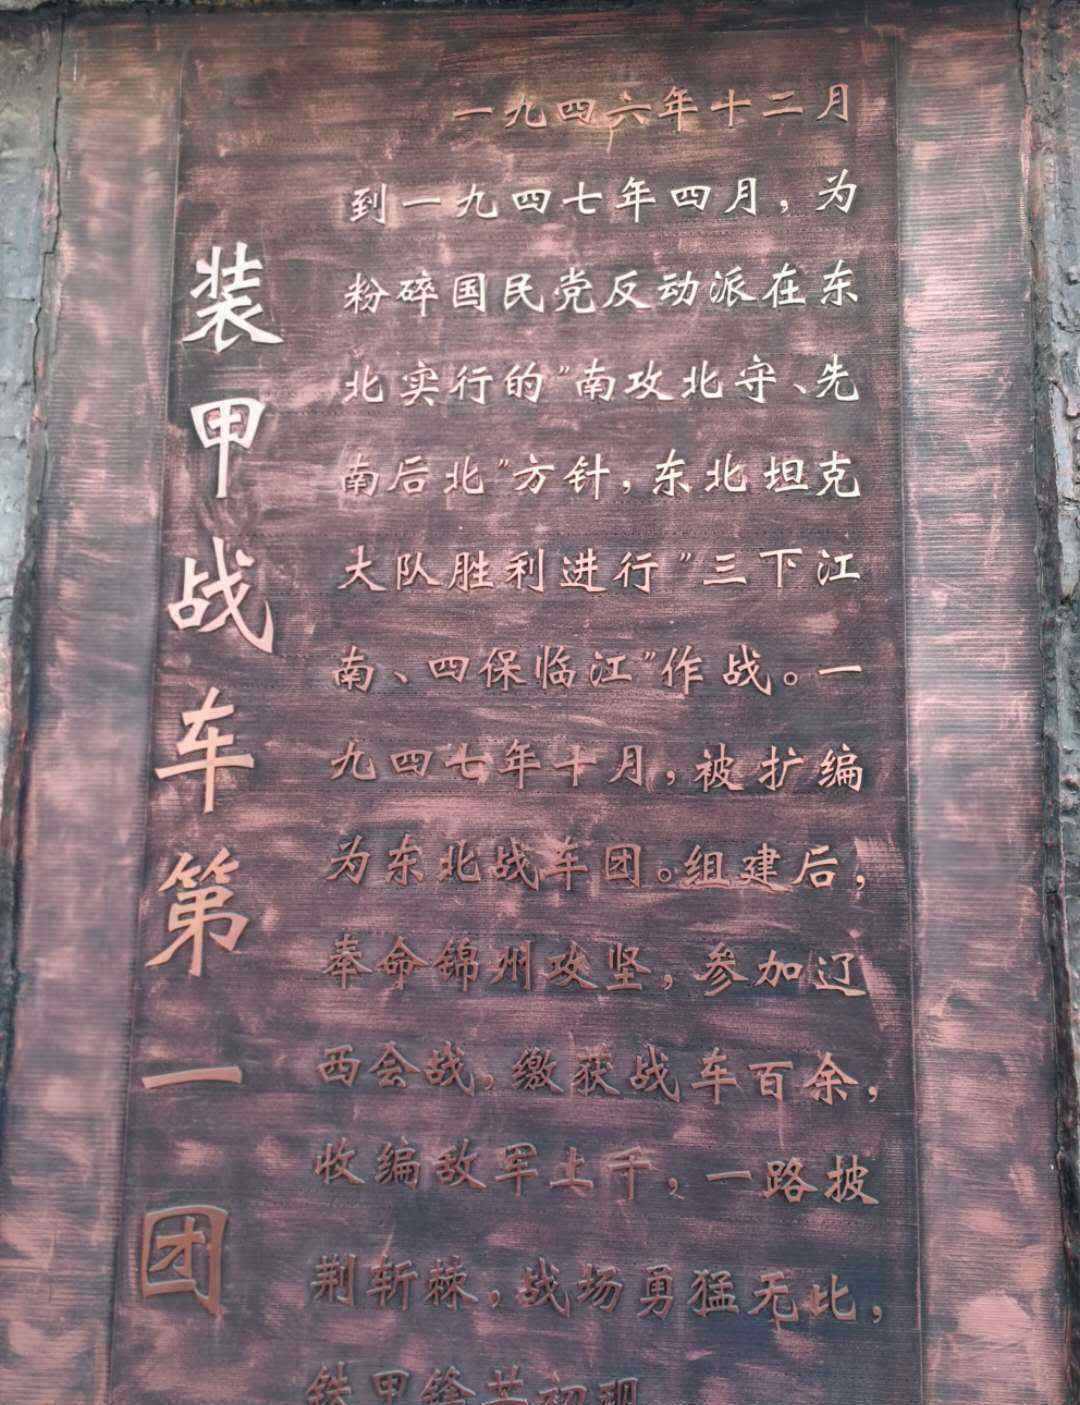 装甲战车第一团
一九四六年十二月
到一九四七年四月，为
粉碎国民党反动派在东
北实行的"南攻北守、先
南后北"方针，东北坦克
大队胜利进行"三下江
南、四保临江"作战。一
九四七年十月，被扩编
为东北战车团。组建后，
奉命锦州攻坚，参加辽
西会战，缴获战车百余，
收编敌军上千，一路披
荆斩棘，战场勇猛无比，
铁甲锋芒初现